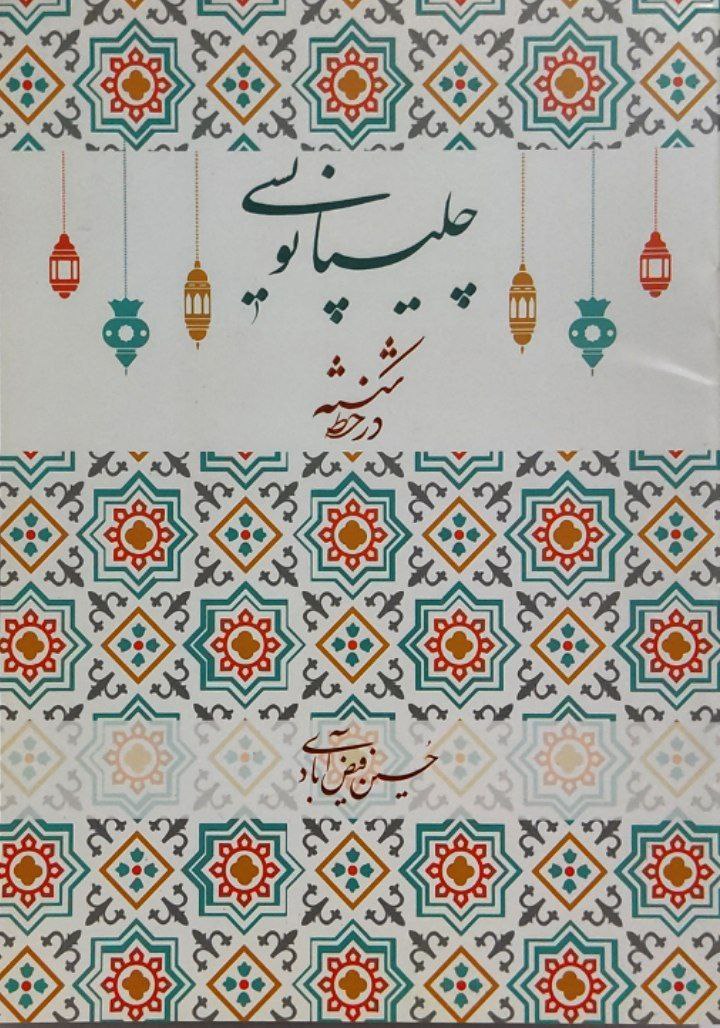 چلیپانویسی
در خط شکسته
حسین فیض آبادی